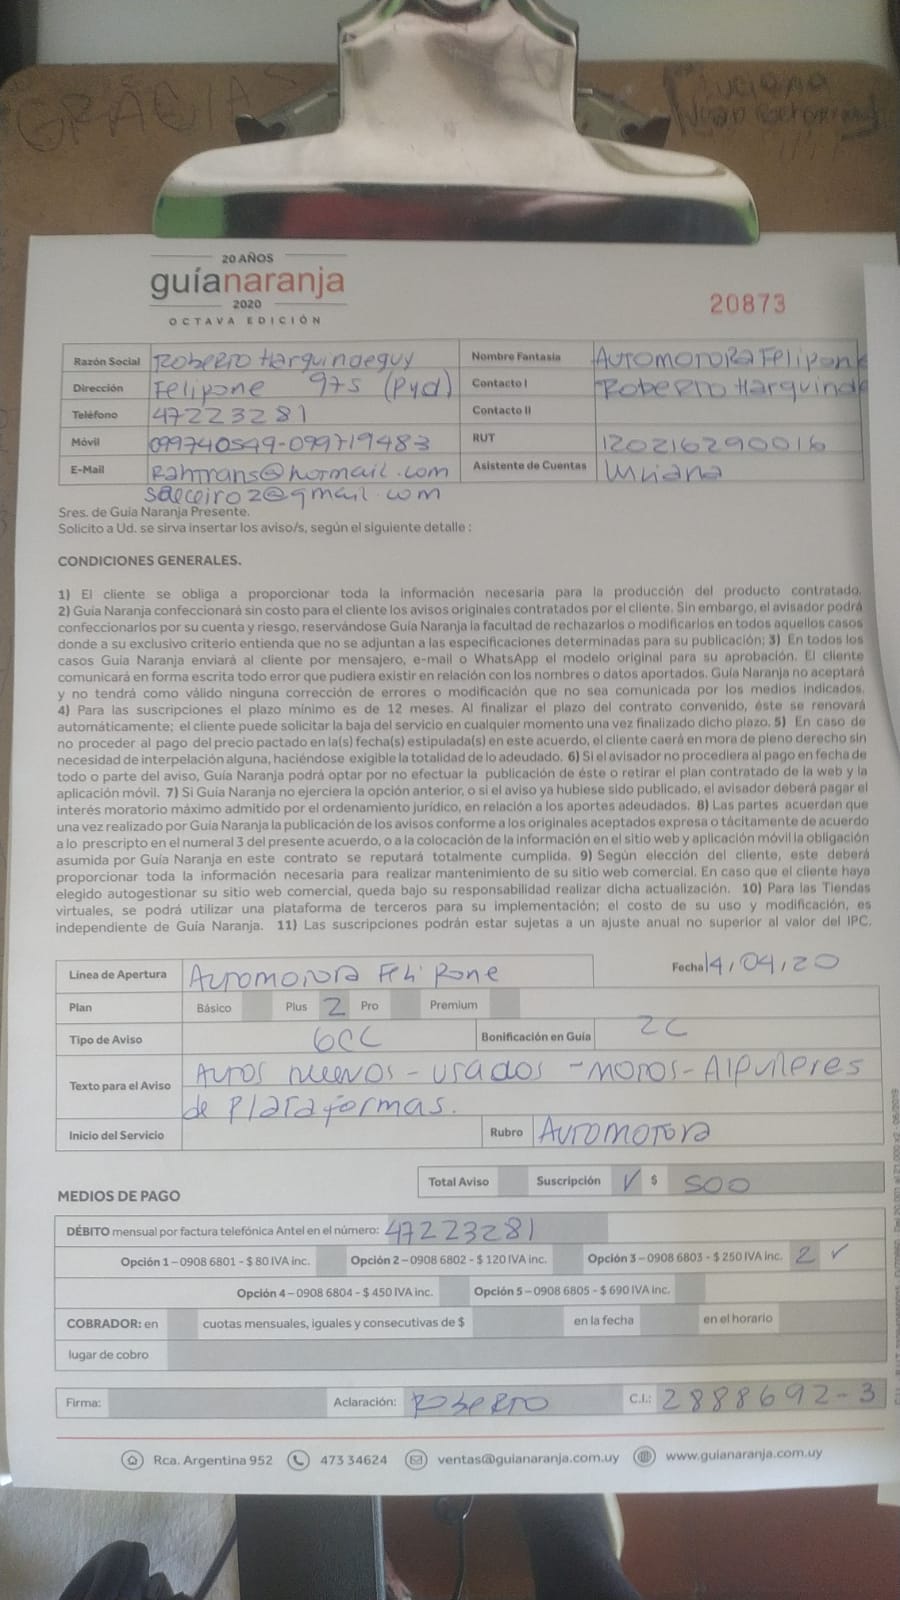 GRACIAS
20 AÑOS
guíanaranja
2020
OCTAVA EDICIÓN
20873
Razón Social Roberto Harguindeguy Nombre Fantasía AUTOMOTORA Felipone
Dirección Felipone 975 (Pyd) Contacto I Roberto Harguinde
Teléfono 47223281 Contacto II
Móvil 099740549-099719483 RUT 120216290016
E-Mail Rahtrans@hotmail.com Asistente de Cuentas
@gmail.com
Sres. de Guía Naranja Presente.
Solicito a Ud. se sirva insertar los aviso/s, según el siguiente detalle :
CONDICIONES GENERALES.
1) El cliente se obliga a proporcionar toda la información necesaria para la producción del producto contratado.
2) Guía Naranja confeccionará sin costo para el cliente los avisos originales contratados por el cliente. Sin embargo, el avisador podrá
confeccionarlos por su cuenta y riesgo, reservándose Guía Naranja la facultad de rechazarlos o modificarlos en todos aquellos casos
donde a su exclusivo criterio entienda que no se adjuntan a las especificaciones determinadas para su publicación; 3) En todos los
casos Guía Naranja enviará al cliente por mensajero, e-mail o WhatsApp el modelo original para su aprobación. El cliente
comunicará en forma escrita todo error que pudiera existir en relación con los nombres o datos aportados. Guía Naranja no aceptará
y no tendrá como válido ninguna corrección de errores o modificación que no sea comunicada por los medios indicados.
4) Para las suscripciones el plazo mínimo es de 12 meses. Al finalizar el plazo del contrato convenido, éste se renovará
automáticamente; el cliente puede solicitar la baja del servicio en cualquier momento una vez finalizado dicho plazo. 5) En caso de
no proceder al pago del precio pactado en la(s) fecha(s) estipulada(s) en este acuerdo, el cliente caerá en mora de pleno derecho sin
necesidad de interpelación alguna, haciéndose exigible la totalidad de lo adeudado. 6) Si el avisador no procediera al pago en fecha de
todo o parte del aviso, Guía Naranja podrá optar por no efectuar la publicación de éste o retirar el plan contratado de la web y la
aplicación móvil. 7) Si Guía Naranja no ejerciera la opción anterior, o si el aviso ya hubiese sido publicado, el avisador deberá pagar el
interés moratorio máximo admitido por el ordenamiento jurídico, en relación a los aportes adeudados. 8) Las partes acuerdan que
una vez realizado por Guía Naranja la publicación de los avisos conforme a los originales aceptados expresa o tácitamente de acuerdo
a lo prescripto en el numeral 3 del presente acuerdo, o a la colocación de la información en el sitio web y aplicación móvil la obligación
asumida por Guía Naranja en este contrato se reputará totalmente cumplida. 9) Según elección del cliente, este deberá
proporcionar toda la información necesaria para realizar mantenimiento de su sitio web comercial. En caso que el cliente haya
elegido autogestionar su sitio web comercial, queda bajo su responsabilidad realizar dicha actualización. 10) Para las Tiendas
virtuales, se podrá utilizar una plataforma de terceros para su implementación; el costo de su uso y modificación, es
independiente de Guía Naranja. 11) Las suscripciones podrán estar sujetas a un ajuste anual no superior al valor del IPC.
Línea de Apertura Automotora Felipone Fecha 14/04/20
Plan Básico Plus 2 Pro Premium
Tipo de Aviso 6CC Bonificación en Guía 2C
Texto para el Aviso Autos nuevos - usados - motos - Alquileres
de Plataformas.
Inicio del Servicio Rubro Automotora
Total Aviso Suscripción ✓ $ 500
MEDIOS DE PAGO
DÉBITO mensual por factura telefónica Antel en el número: 47223281
Opción 1 – 0908 6801 - $ 80 IVA inc. Opción 2 – 0908 6802 - $ 120 IVA inc. Opción 3 – 0908 6803 - $ 250 IVA inc. 2 ✓
Opción 4 – 0908 6804 - $ 450 IVA inc. Opción 5 – 0908 6805 - $ 690 IVA inc.
COBRADOR: en cuotas mensuales, iguales y consecutivas de $ en la fecha en el horario
lugar de cobro
Firma: Aclaración: Roberto C.I.: 2888692-3
Rca. Argentina 952 473 34624 ventas@guianaranja.com.uy www.guianaranja.com.uy